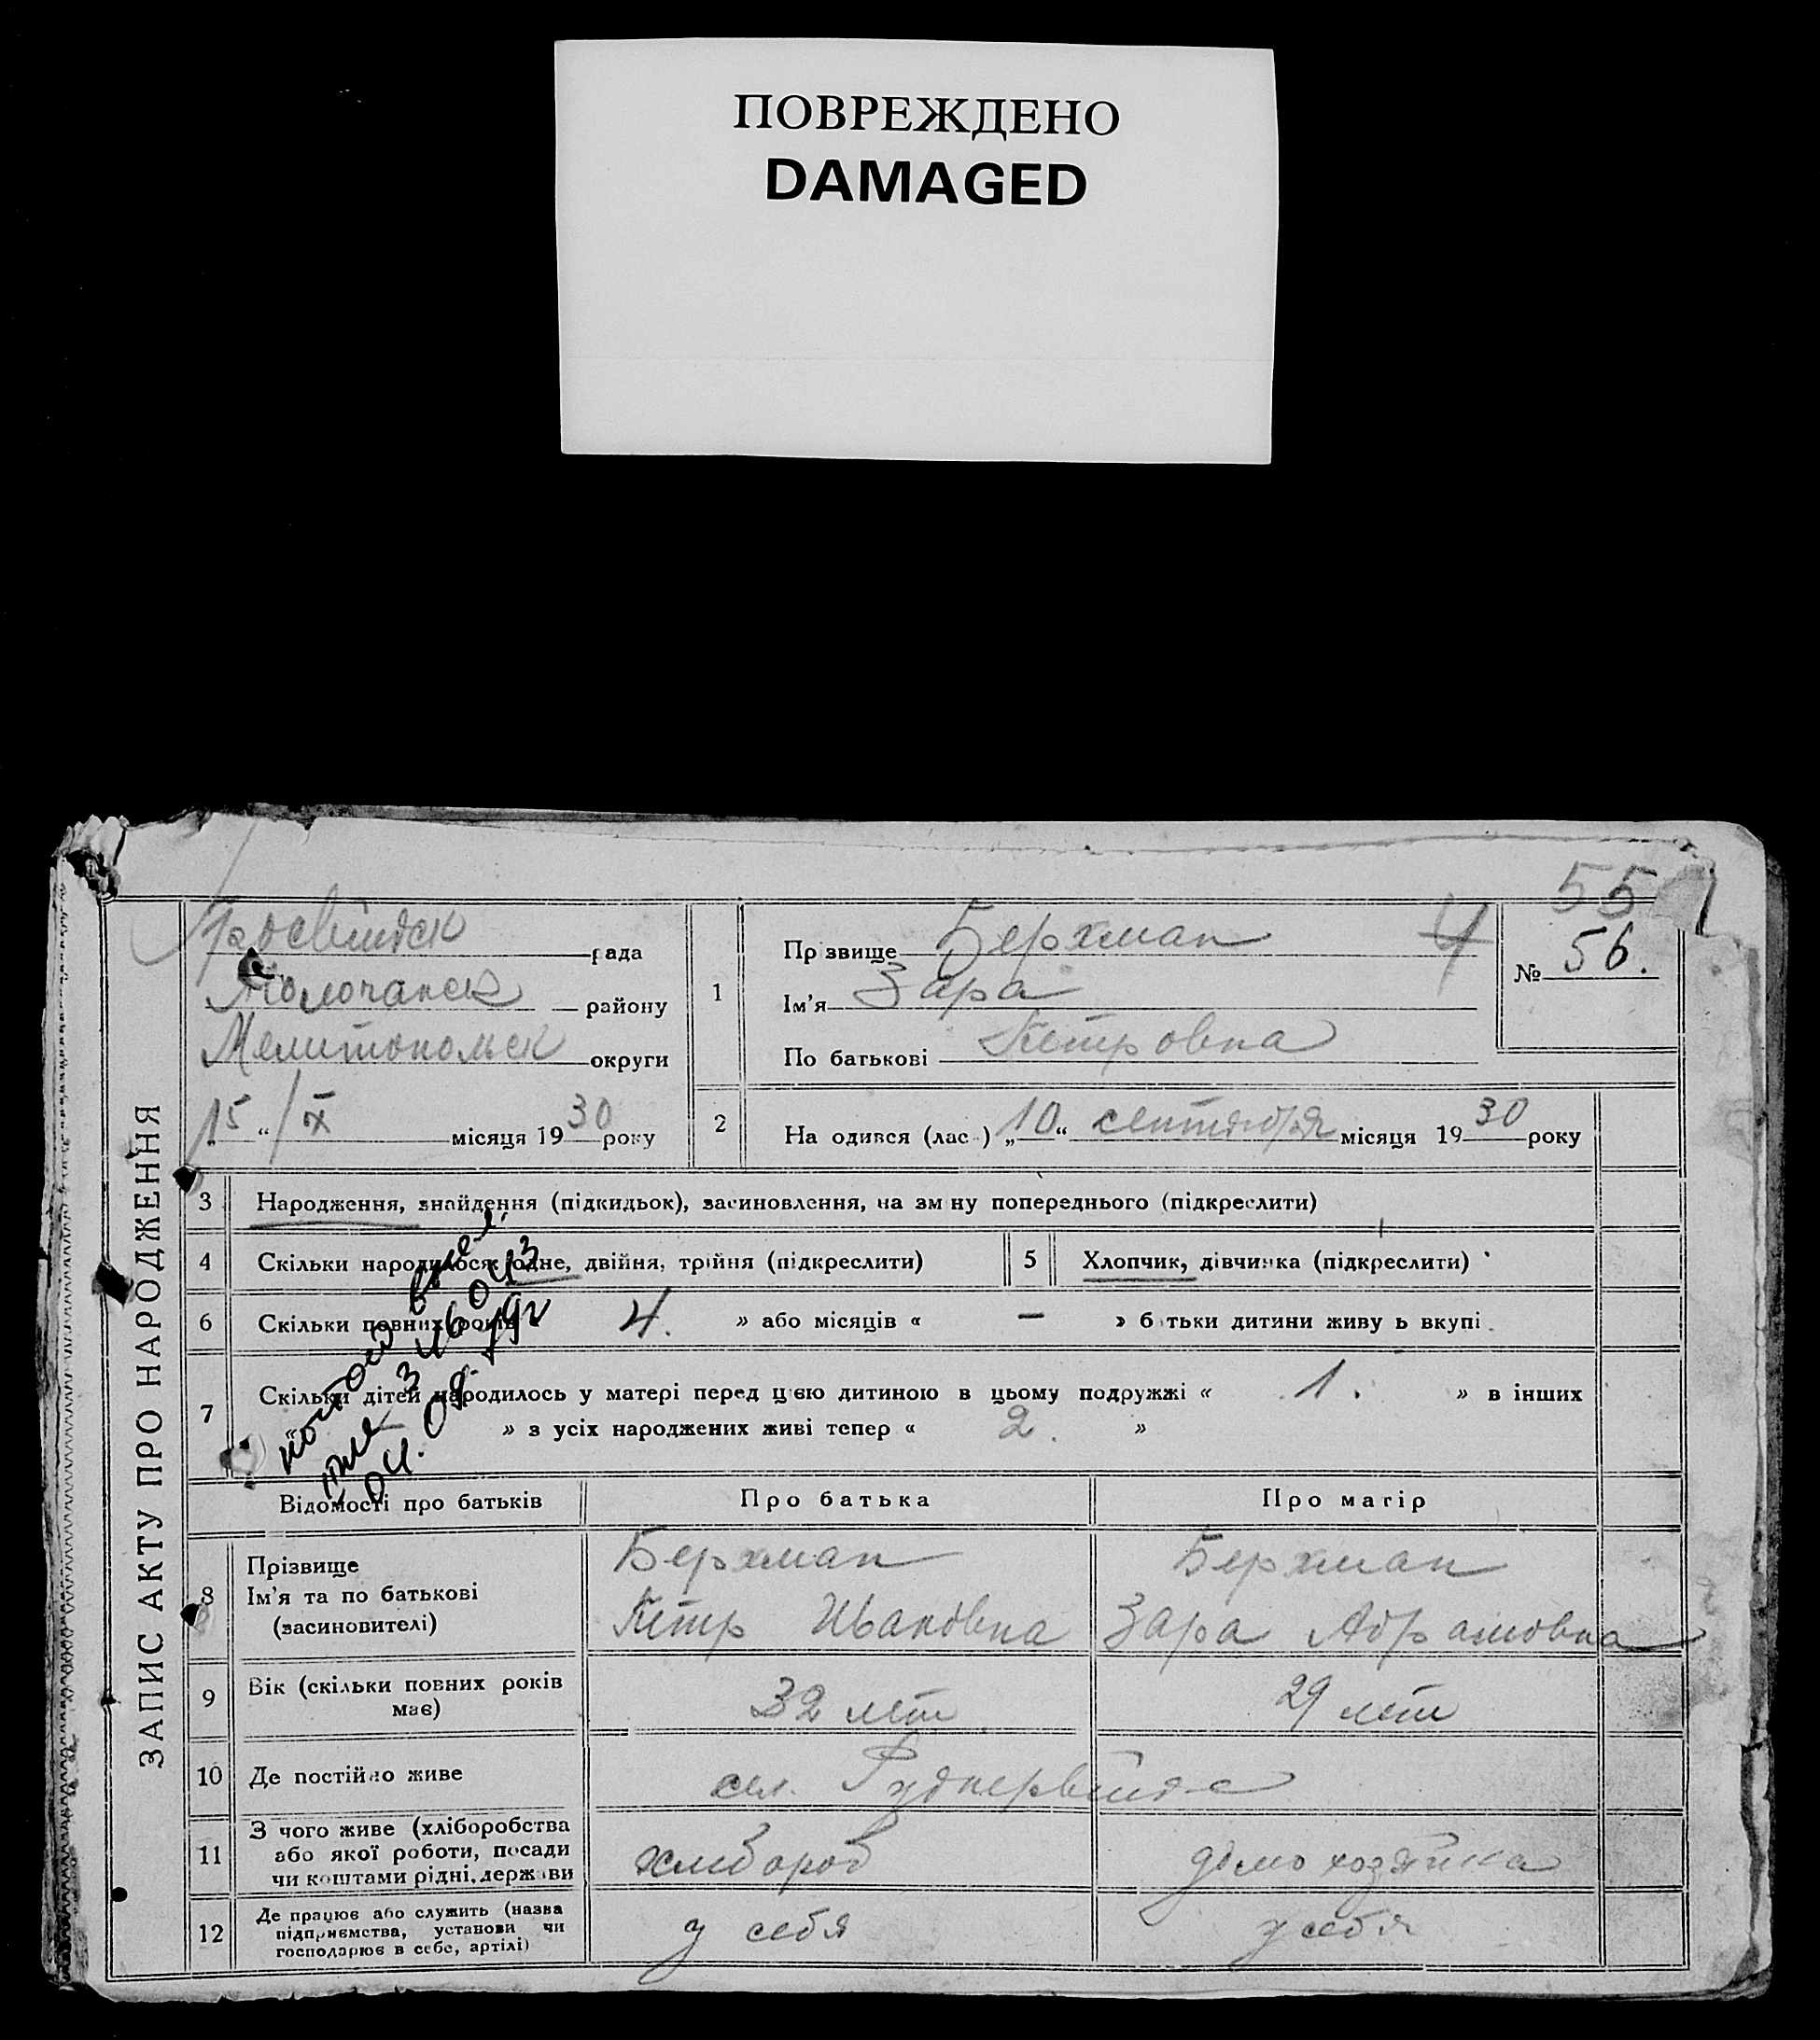 ПОВРЕЖДЕНО
DAMAGED
55
ЗАПИС АКТУ ПРО НАРОДЖЕННЯ
рада
Молочанск району
Мелитопольск округи
„15“ / IX місяця 1930 року
1
Пр звище Бергман
Ім'я Зара
По батькові Петровна
4
№ 56.
2
На одився (лас ) „10“ сентября місяця 1930 року
3
Народження, знайдення (підкидьок), засиновлення, на зм ну попереднього (підкреслити)
4
Скільки народилося: одне, двійня, трійня (підкреслити)
5
Хлопчик, дівчинка (підкреслити)
6
Скільки повних років 4. » або місяців « — » б тьки дитини живу ь вкупі
7
Скільки дітей народилось у матері перед цією дитиною в цьому подружжі « 1. » в інших
» з усіх народжених живі тепер « 2. »
Відомості про батьків
Про батька
Про матір
8
Прізвище
Ім'я та по батькові
(засиновителі)
Бергман
Петр Ивановна
Бергман
Зара Абрамовна
9
Вік (скільки повних років
має)
32 лет
29 лет
10
Де постійно живе
сел.
11
З чого живе (хліборобства
або якої роботи, посади
чи коштами рідні, держ ви
хлибороб
домохозяйка
12
Де працює або служить (назва
підприємства, установи чи
господарює в себе, артілі)
у себя
у себя